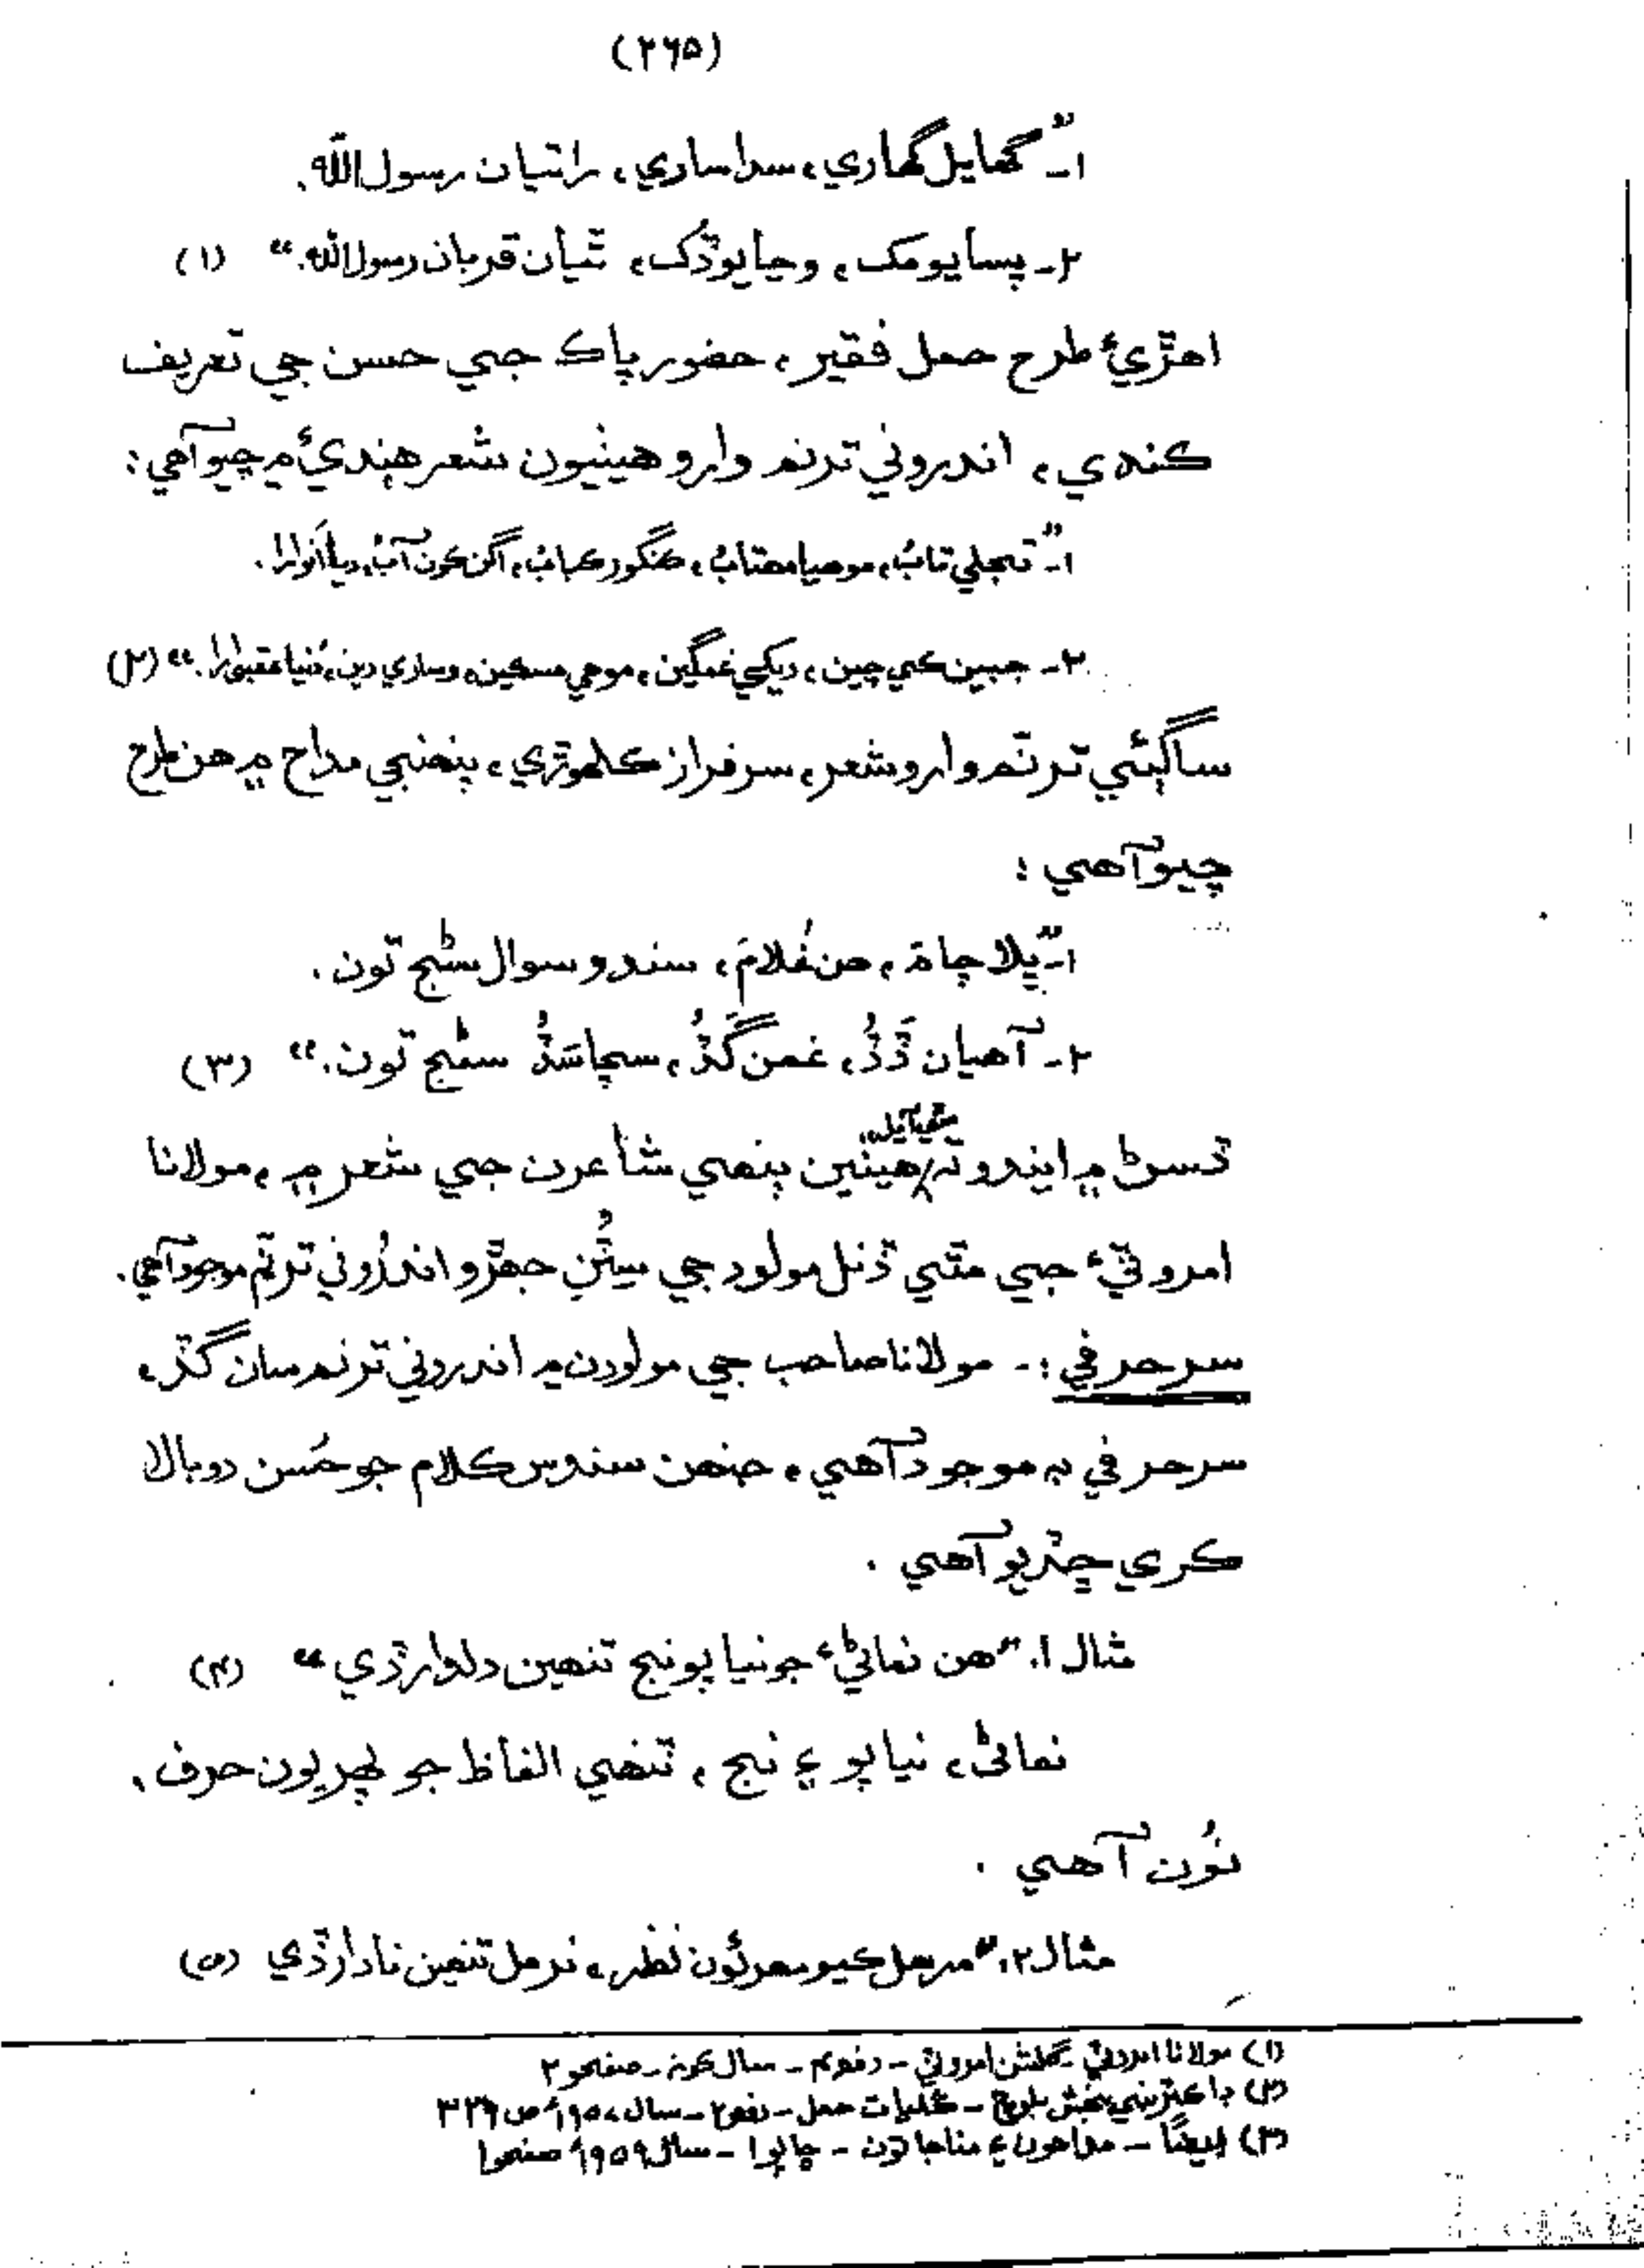 (٢٦٥)
١ـ ”گھايل گھاري، سدا ساري، راتيان رسول الله.
٢ـ پسايو مک، وڃايو ڏک، ٿيان قربان رسول الله.“ (١)
اهڙيءَ طرح حمل فقير، حضور پاڪ جي حسن جي تعريف
ڪندي، اندروني ترنم وارو هيٺيون شعر هنديءَ ۾ چيو آهي:
١ـ ”تجلي تابُ، موهيا مهتابُ،
٢ـ جبين ڪي چين، ديکي غمگين، موهي مسڪين، وساري دين،
ساڳئي ترنم وارو شعر، سرفراز ڪلهوڙي، پنهنجي مداح ۾ هن طرح
چيو آهي :
١ـ ”ڀلا ڄام، هن غلامَ، سندو سوال سڻج تون.
٢ـ آهيان ڏَڏُ، غمن گَڏُ، سچا سَڏُ سڻج تون.“ (٣)
ڏسڻ ۾ ايندو ته هيٺين ٻنهي شاعرن جي شعر ۾، مولانا
امروٽيءَ جي مٿي ڏنل مولود جي سٽُن جهڙو اندرُوني ترنم موجود آهي.
سر حرفي :ـ مولانا صاحب جي مولودن ۾ اندروني ترنم سان گڏ،
سر حرفي به موجود آهي، جنهن سندس ڪلام جو حُسن دوبالا
ڪري ڇڏيو آهي .
مثال ١. ”هن نماڻيءَ جو نياپو نج تنهين دلدار ڏي“ (٤)
نماڻي، نياپو ۽ نج، ٽنهي الفاظ جو پهريون حرف،
نُون آهي .
مثال ٢. ”مرهل ڪيو مهرئون نظر، نرمل تنهين نادار ڏي (٥)
(١) مولانا امروٽي ـ گلشن امروٽي ـ ـ سال ڪونه ـ صفحو ٢
(٢) ڊاڪٽر نبي بخش بلوچ ـ ڪليات حمل ـ دفعو ٢ ـ سال
(٣) ايضًا ـ مداحون ۽ مناجاتون ـ ڇاپو ١ ـ سال ١٩٥٩ع صفحو ١